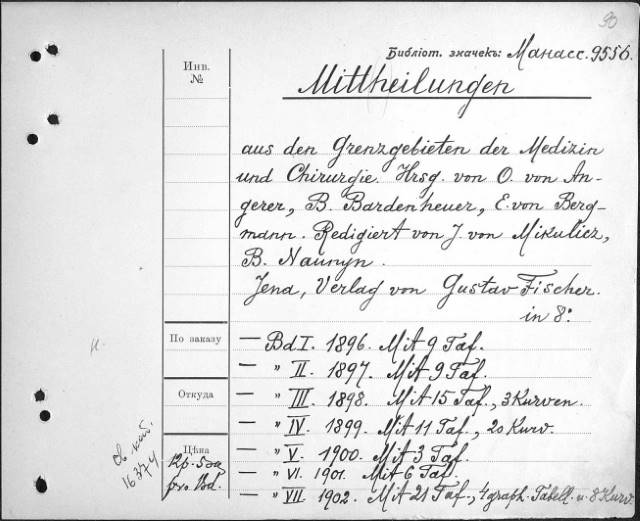 90
Библіот. значекъ: Манасс. 9556.
Инв.
№
Mittheilungen
aus den Grenzgebieten der Medizin
und Chirurgie. Hrsg. von O. von An-
gerer, B. Bardenheuer, E. von Berg-
mann. Redigiert von J. von Mikulicz,
B. Naunyn.
Jena, Verlag von Gustav Fischer.
in 8º.
По заказу
— Bd I. 1896. Mit 9 Taf.
— " II. 1897. Mit 9 Taf.
Откуда
— " III 1898. Mit 15 Taf., 3 Kurven.
— " IV. 1899. Mit 11 Taf., 20 Kurv.
Цѣна
— " V. 1900. Mit 3 Taf.
— " VI. 1901. Mit 6 Taf.
— " VII. 1902. Mit 21 Taf., 4 graph. Tabell. u. 8 Kurv.
12р.
pro Bd.
16374